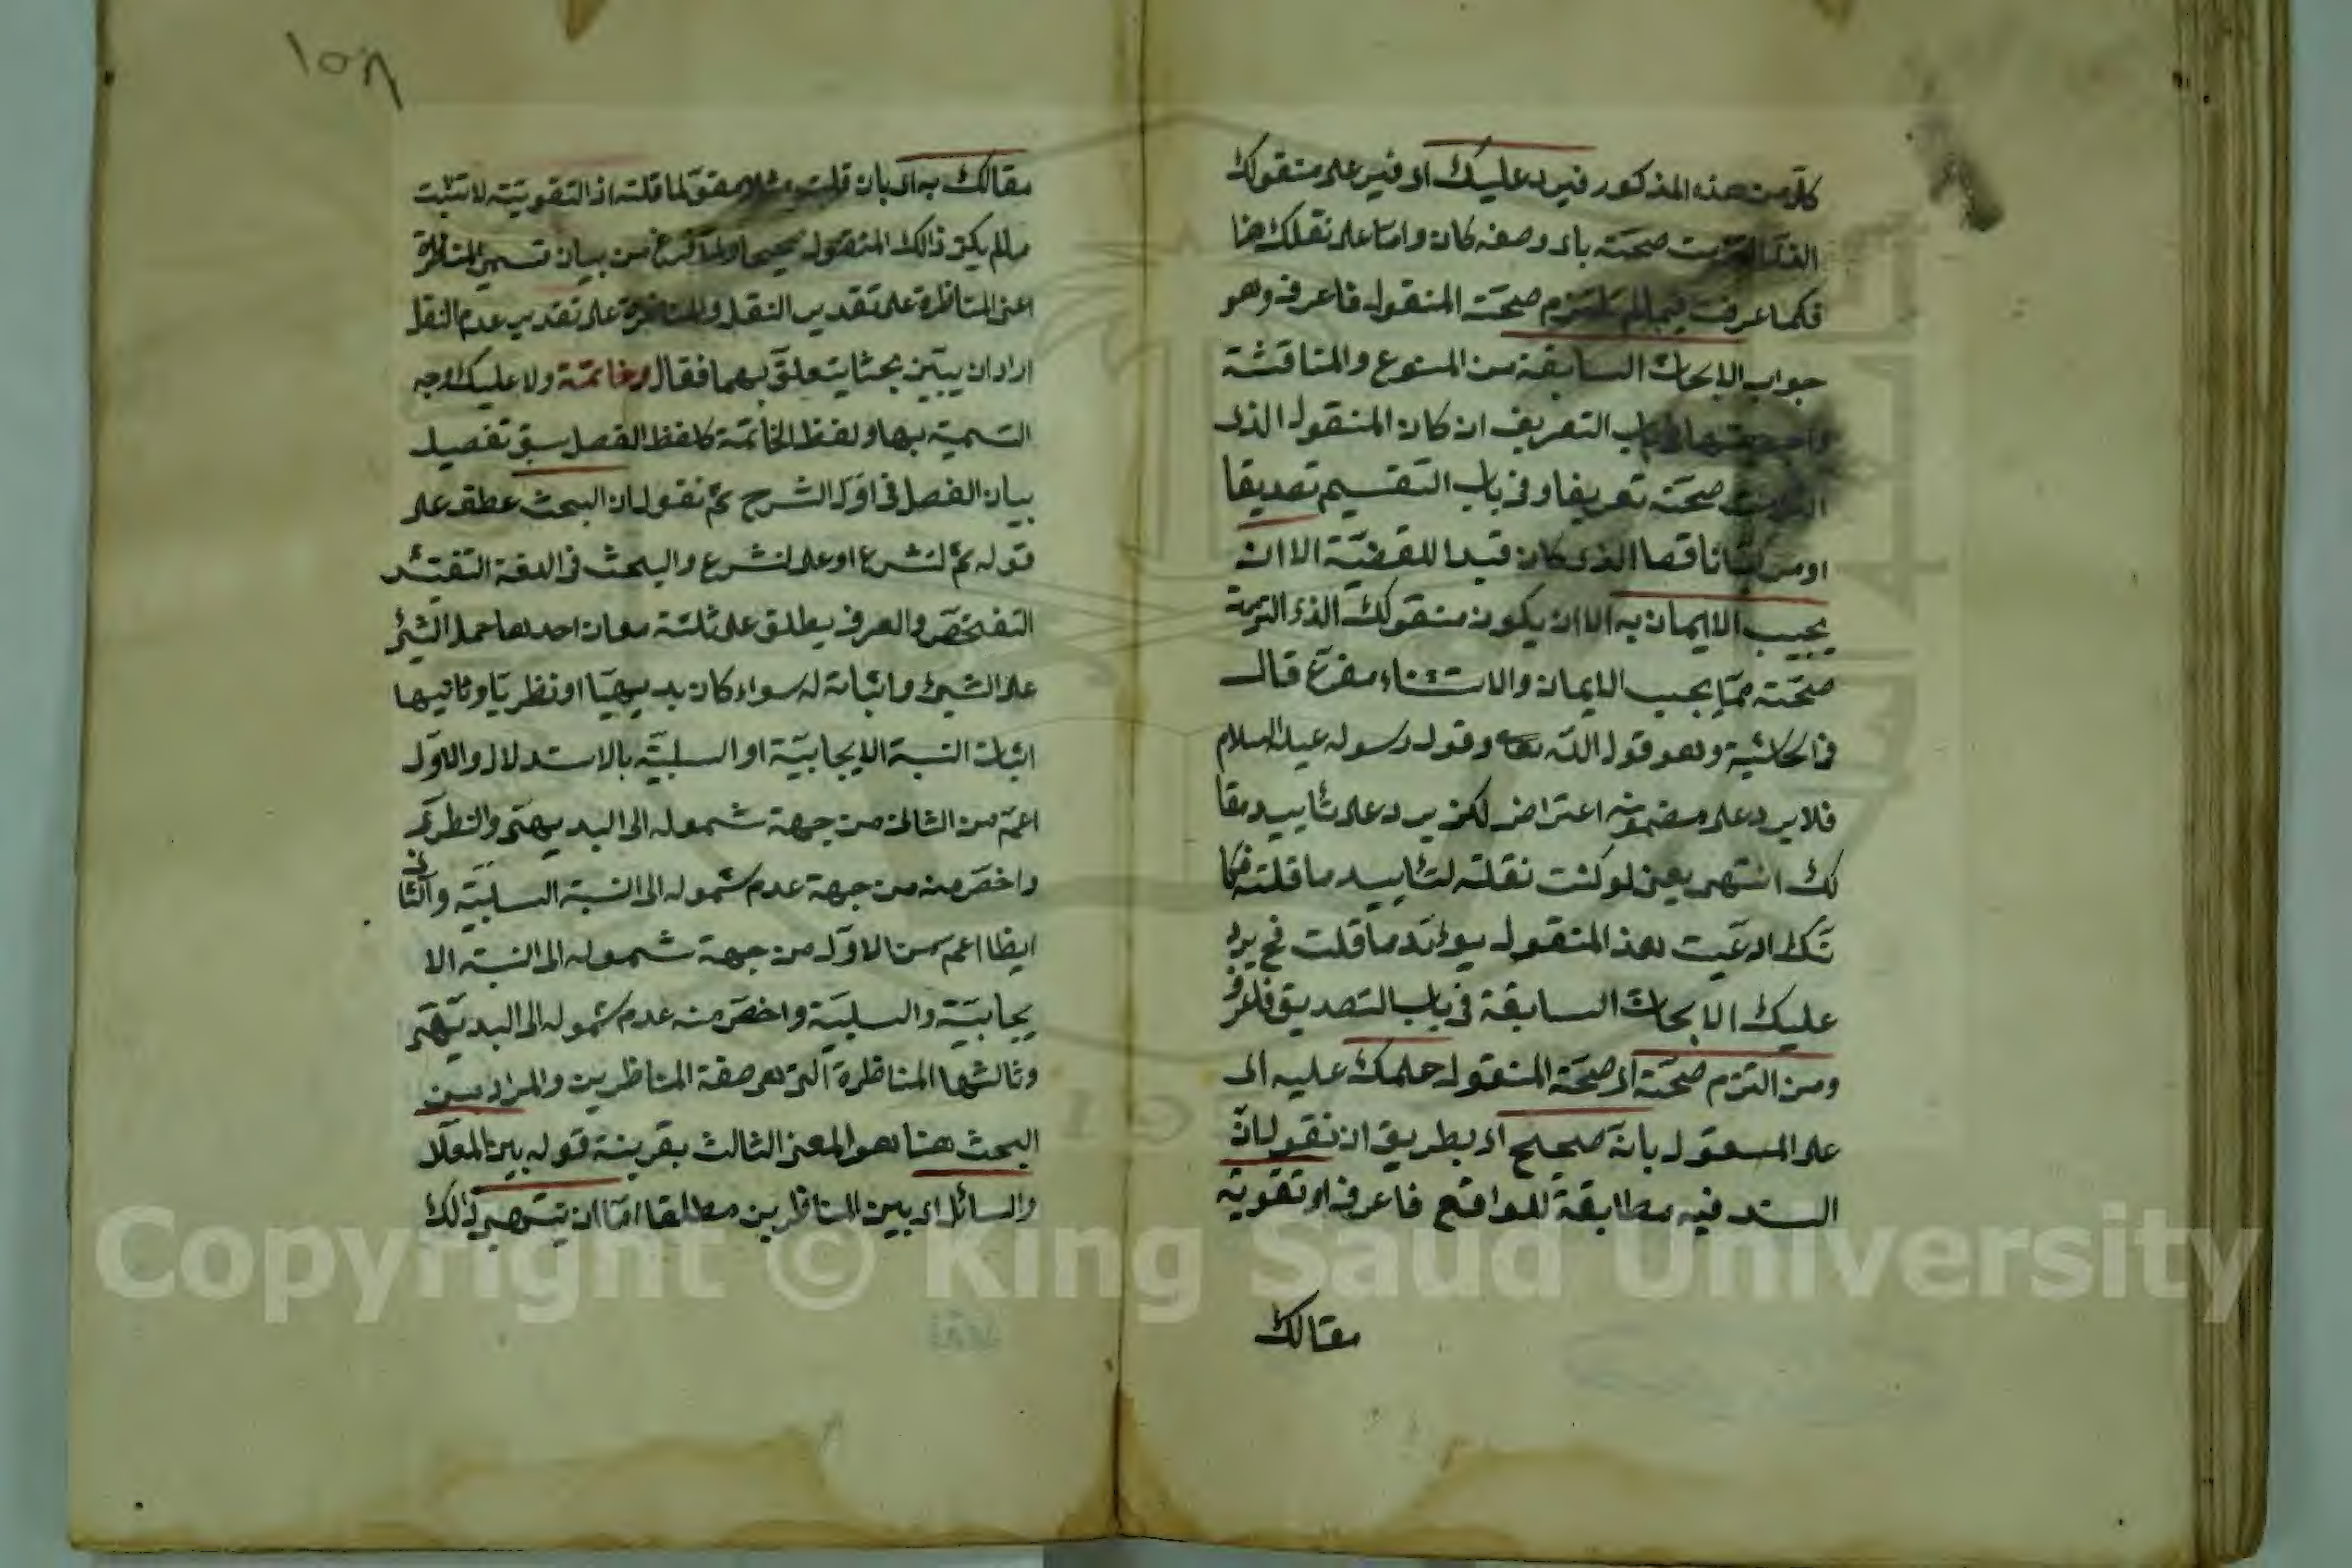 كلا من هذه المذكور فيرد عليك اى فيرد على منقولك
صحته باى وصف كان واما على نقلك هنا
فكما عرفت فيما لم يلتزم صحة المنقول فاعرف وهو
جواب الابحاث السابقة من المنوع والمناقشة
باب التعريف ان كان المنقول الذى
صحته تعريفا وفى باب التقسيم تصديقا
او مركبا ناقصا الذى كان قيدا للقضية الا ان
يجيب الايمان به الا ان يكون منقولك الذى التزمة
صحته مما يجب الايمان والاستثناء مفرغ قال
فى الحاشية وهو قول الله تعا وقول رسوله عليه السلام
فلا يرد على مضمونه اعتراض لكن يرد على تأييد مقا
لك انتهى يعنى لو كنت نقلته لتأييد ما قلته فكا
نك ادعيت هذا المنقول يؤيد ما قلت فح يرد
عليك الابحاث السابقة فى باب التصديق فاعرف
ومن التزم صحته اى صحة المنقول حلمك عليه اى
على المنقول بانه صحيح اى بطريق ان نقول ان
السند فيه مطابقة للواقع فاعرف او تقوية
مقالك
١٥٨
مقالك به اى بان قلت مثلا محقق لما قلته اذ التقوية لا تثبت
مالم يكن ذالك المنقول صحيحا ولما فرغ من بيان قسمى المناظرة
اعنى المناظرة على تقدير النقل والمناظرة على تقدير عدم النقل
اراد ان يبين بحثا يتعلق بهما فقال وخاتمة ولا عليك وجه
التسمية بها ولفظ الخاتمة كلفظ الفصل سبق تفصيل
بيان الفصل فى اول الشرح ثم نقول ان البحث عطف على
قوله ثم لنشرع او على لنشرع والبحث فى اللغة التفتش
التفحص والعرف يطلق على ثلثة معان احدها حمل الشئ
على الشيئ واثباته له سواء كان بديهيا او نظريا وثانيها
اثبات النسبة الايجابية او السلبية بالاستدلال والاول
اعم من الثانى من جهة شموله الى البديهى والنظرى
واخص منه من جهة عدم شموله الى النسبة السلبية والثانى
ايظا اعم من الاول من جهة شموله الى النسبة الا
يجابية والسلبية واخص منه عدم شموله الى البديهى
وثالثها المناظرة التى هى صفة المناظرين والمراد من
البحث هنا هو المعنى الثالث بقرينة قوله بين المعلل
والسائل اى بين المناظرين مطلقا اما ان ينتهى ذالك
Copyright © King Saud University